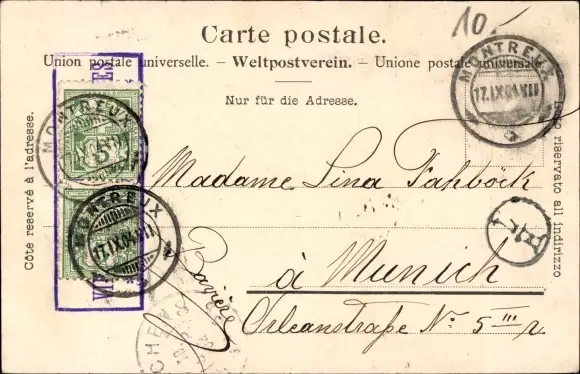 10.-
Carte postale.
Union postale universelle. – Weltpostverein. – Unione postale universale.
Nur für die Adresse.
Côté reservé à l'adresse.
Lato riservato all indirizzo
MONTREUX
MONTREUX
17.IX.04.VII
MONTREUX
17.IX.04.VII
5
Madame Lina Fahböck
à Munich
Bavière
Orleanstraße No. 5 III r.